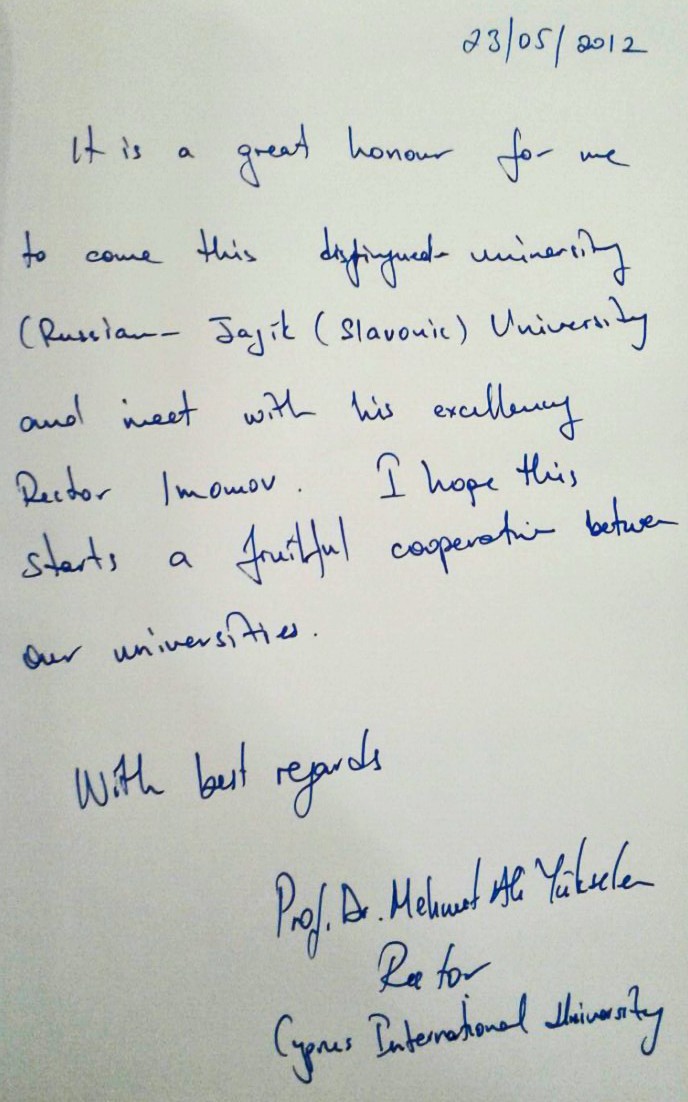 23/05/2012
It is a great honour for me
to come this distingued university
(Russian- Tajik (Slavonic) University
and meet with his excellency
Rector Imomov. I hope this
starts a fruitful cooperation between
our universities.
With best regards
Prof. Dr. Mehmet Ali Yükselen
Rector
Cyprus International University